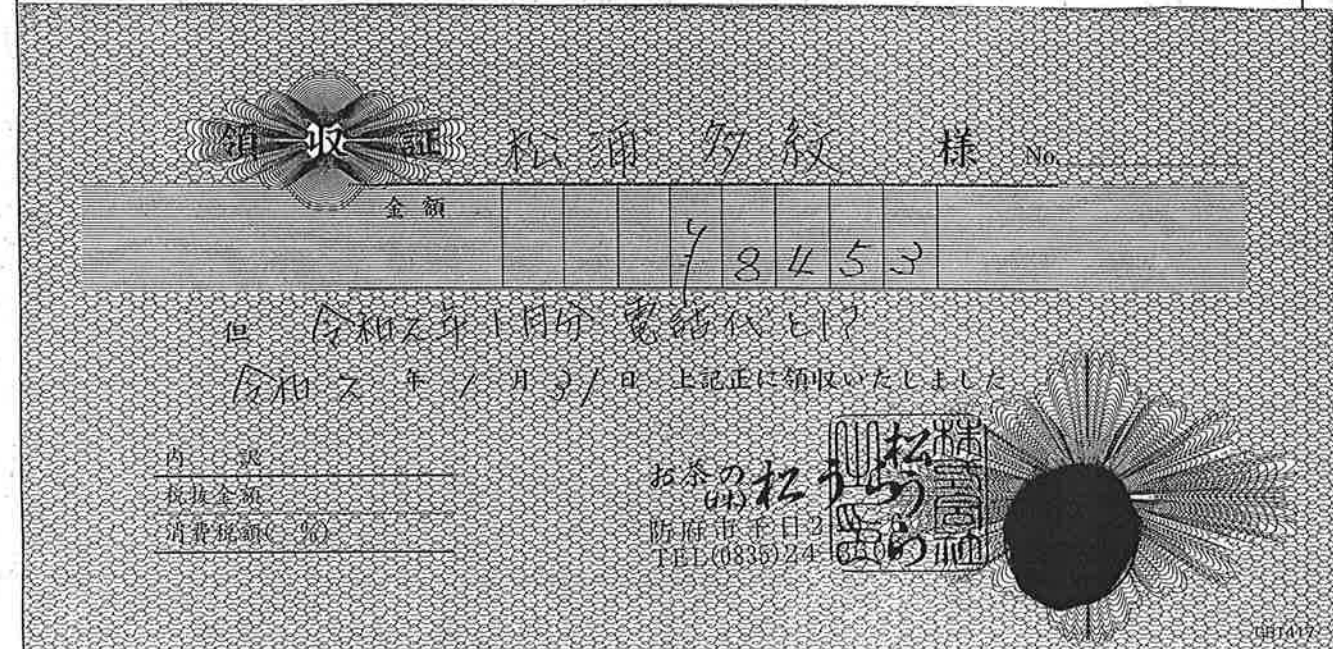 領収証 松浦多紋 様 No.
金額 ¥8453
但 令和元年1月分 電話代として
令和元年1月31日 上記正に領収いたしました
内訳
税抜金額
消費税額( %)
お茶の 松うら
防府市千日2
TEL(0835)24
GB1417